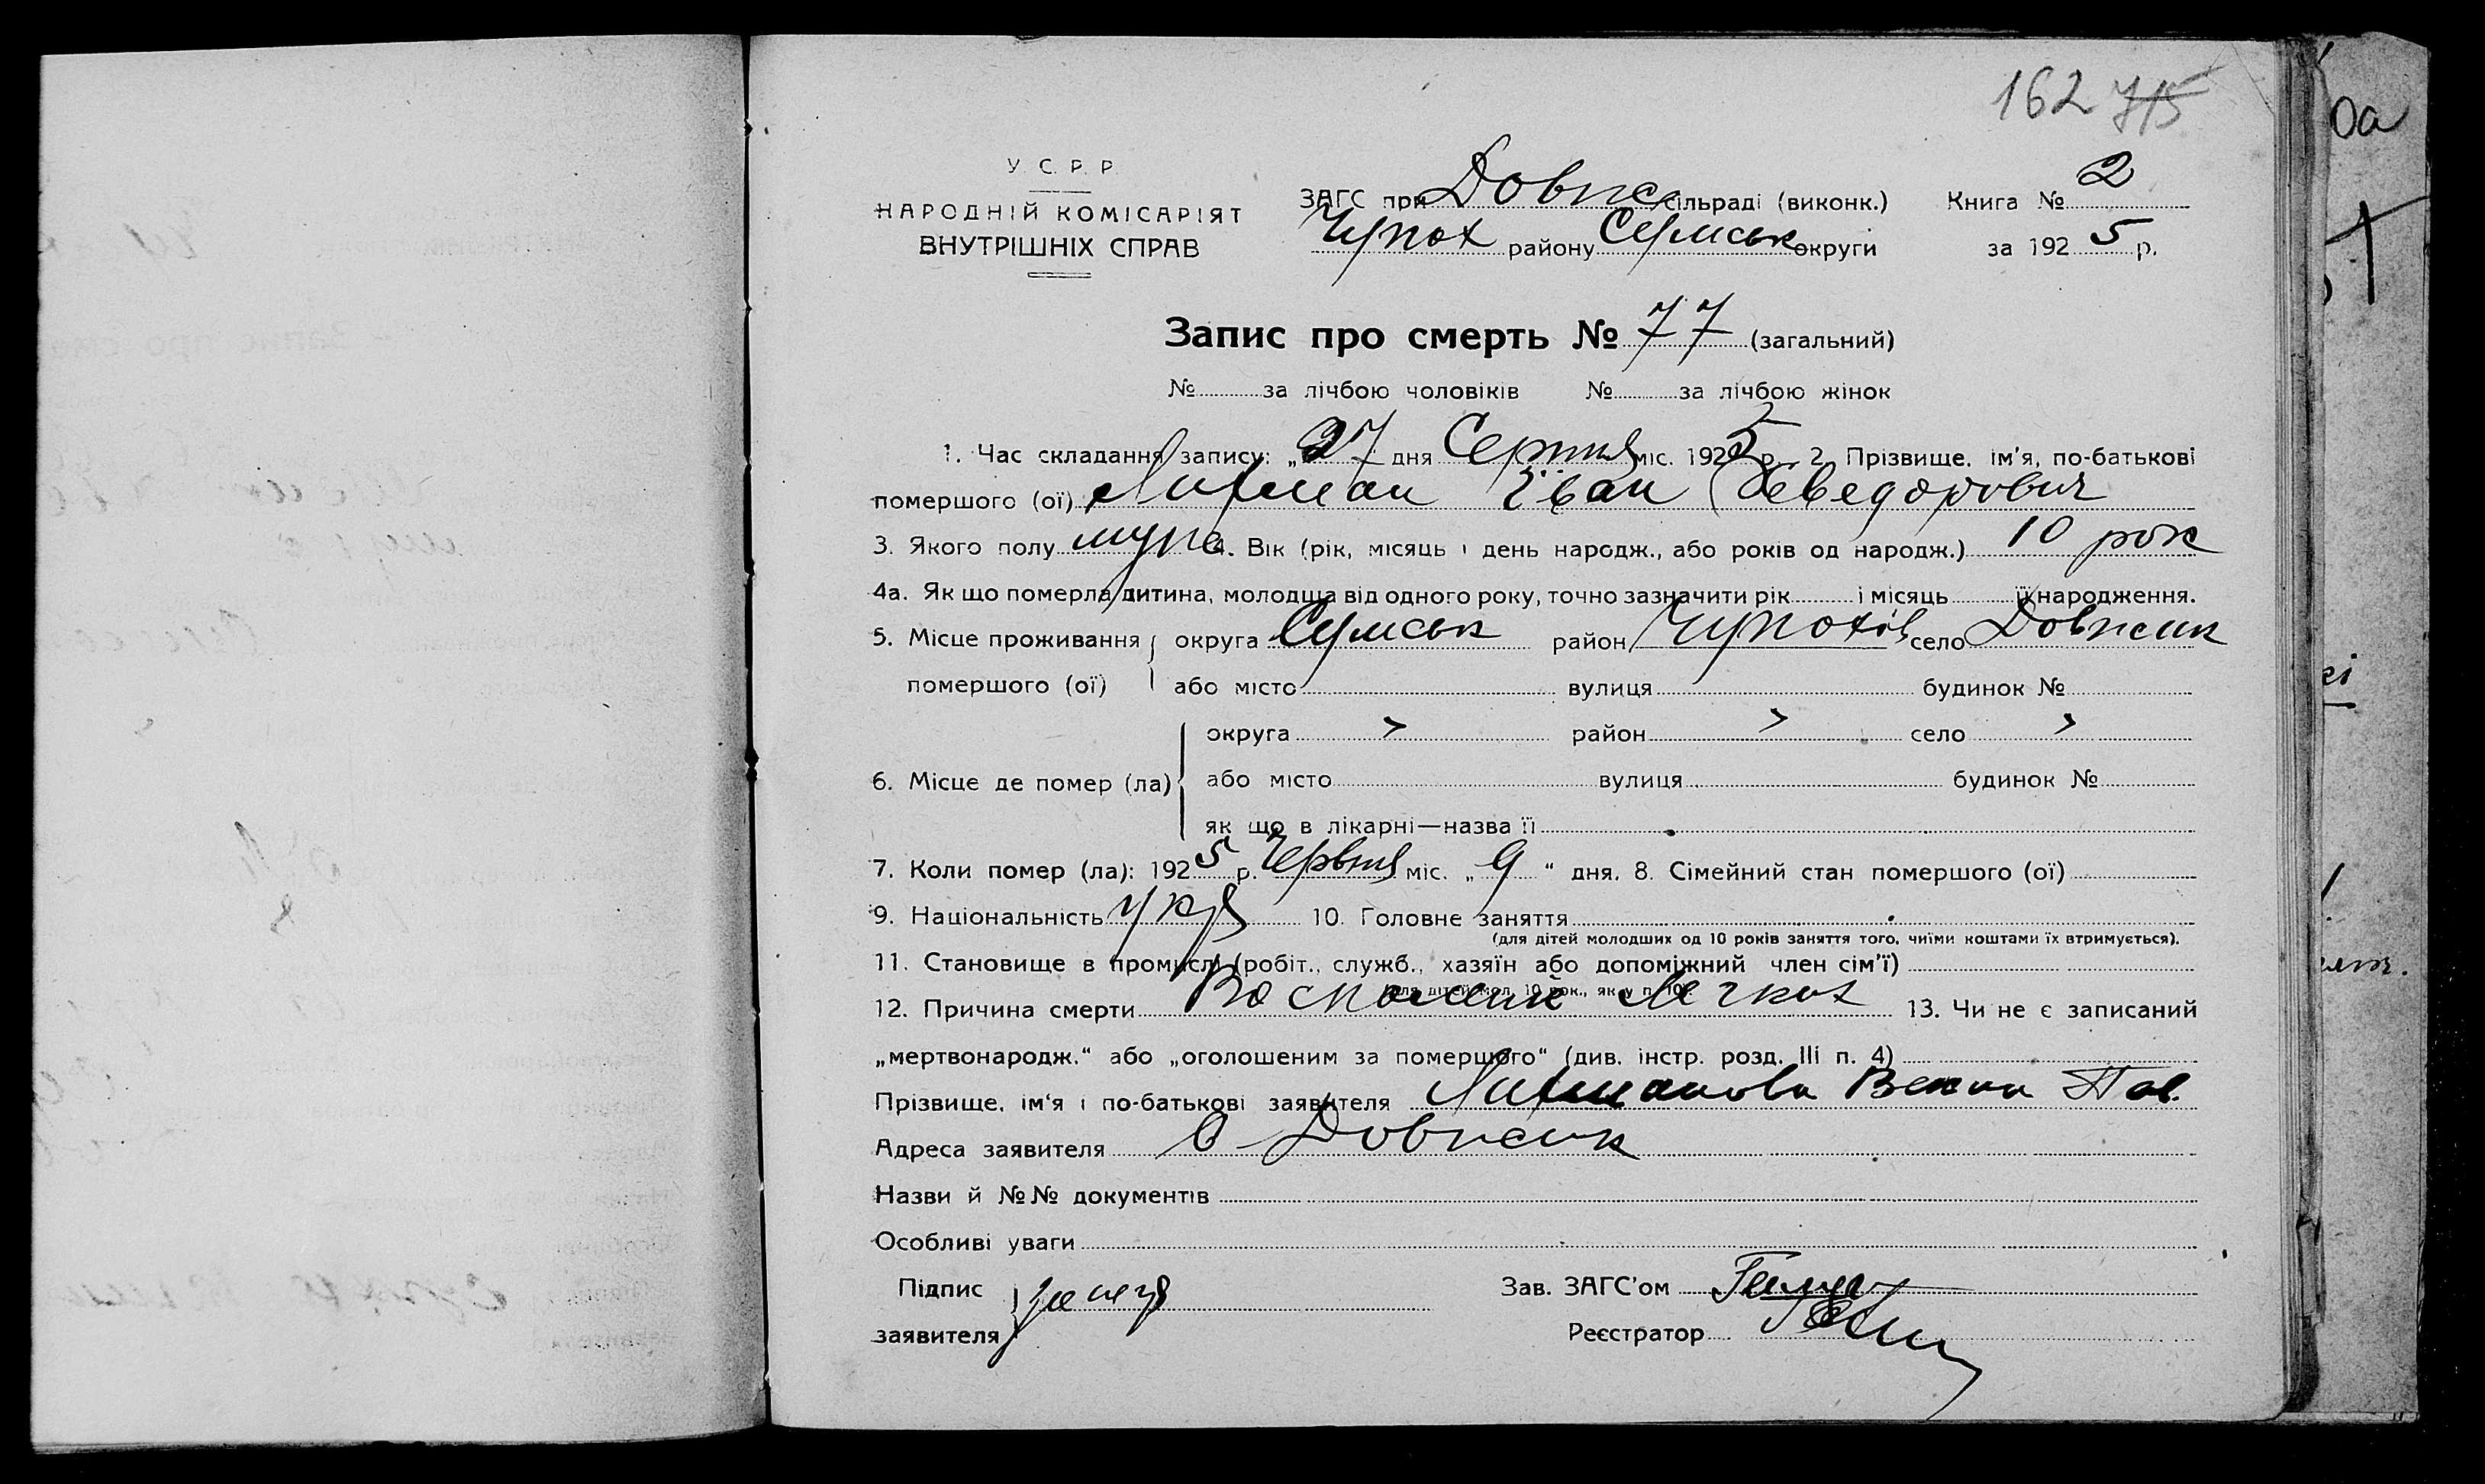 162 715
У. С. Р. Р.
НАРОДНІЙ КОМІСАРІЯТ
ВНУТРІШНІХ СПРАВ
ЗАГС при Довжс сільраді (виконк.) Книга № 2
Чупах району Сумськ округи за 1925 р.
Запис про смерть № 77 (загальний)
№ за лічбою чоловіків № за лічбою жінок
1. Час складання запису: „27 дня Серпня міс. 1925 р. 2. Прізвище, ім'я, по-батькові
помершого (ої) Лахман Іван
3. Якого полу муж 4. Вік (рік, місяць і день народж., або років од народж.) 10 рок
4а. Як що померла дитина, молодща від одного року, точно зазначити рік і місяць її народження.
5. Місце проживання округа Сумськ район село Довжик
помершого (ої) або місто вулиця будинок №
округа > район > село >
6. Місце де помер (ла) або місто вулиця будинок №
як що в лікарні—назва її
7. Коли помер (ла): 1925 р. Червня міс. „9“ дня. 8. Сімейний стан помершого (ої)
9. Національність укр 10. Головне заняття
(для дітей молодших од 10 років заняття того, чиїми коштами їх втримується).
11. Становище в промислі (робіт., служб., хазяїн або допоміжний член сім'ї)
(для дітей мол. 10 рок., як у п. 10)
12. Причина смерти Лечких 13. Чи не є записаний
„мертвонародж.“ або „оголошеним за померщого“ (див. інстр. розд. III п. 4)
Прізвище, ім'я і по-батькові заявителя Лахманова
Адреса заявителя с Довжик
Назви й №№ документів
Особливі уваги
Підпис
заявителя
Зав. ЗАГС'ом
Реєстратор